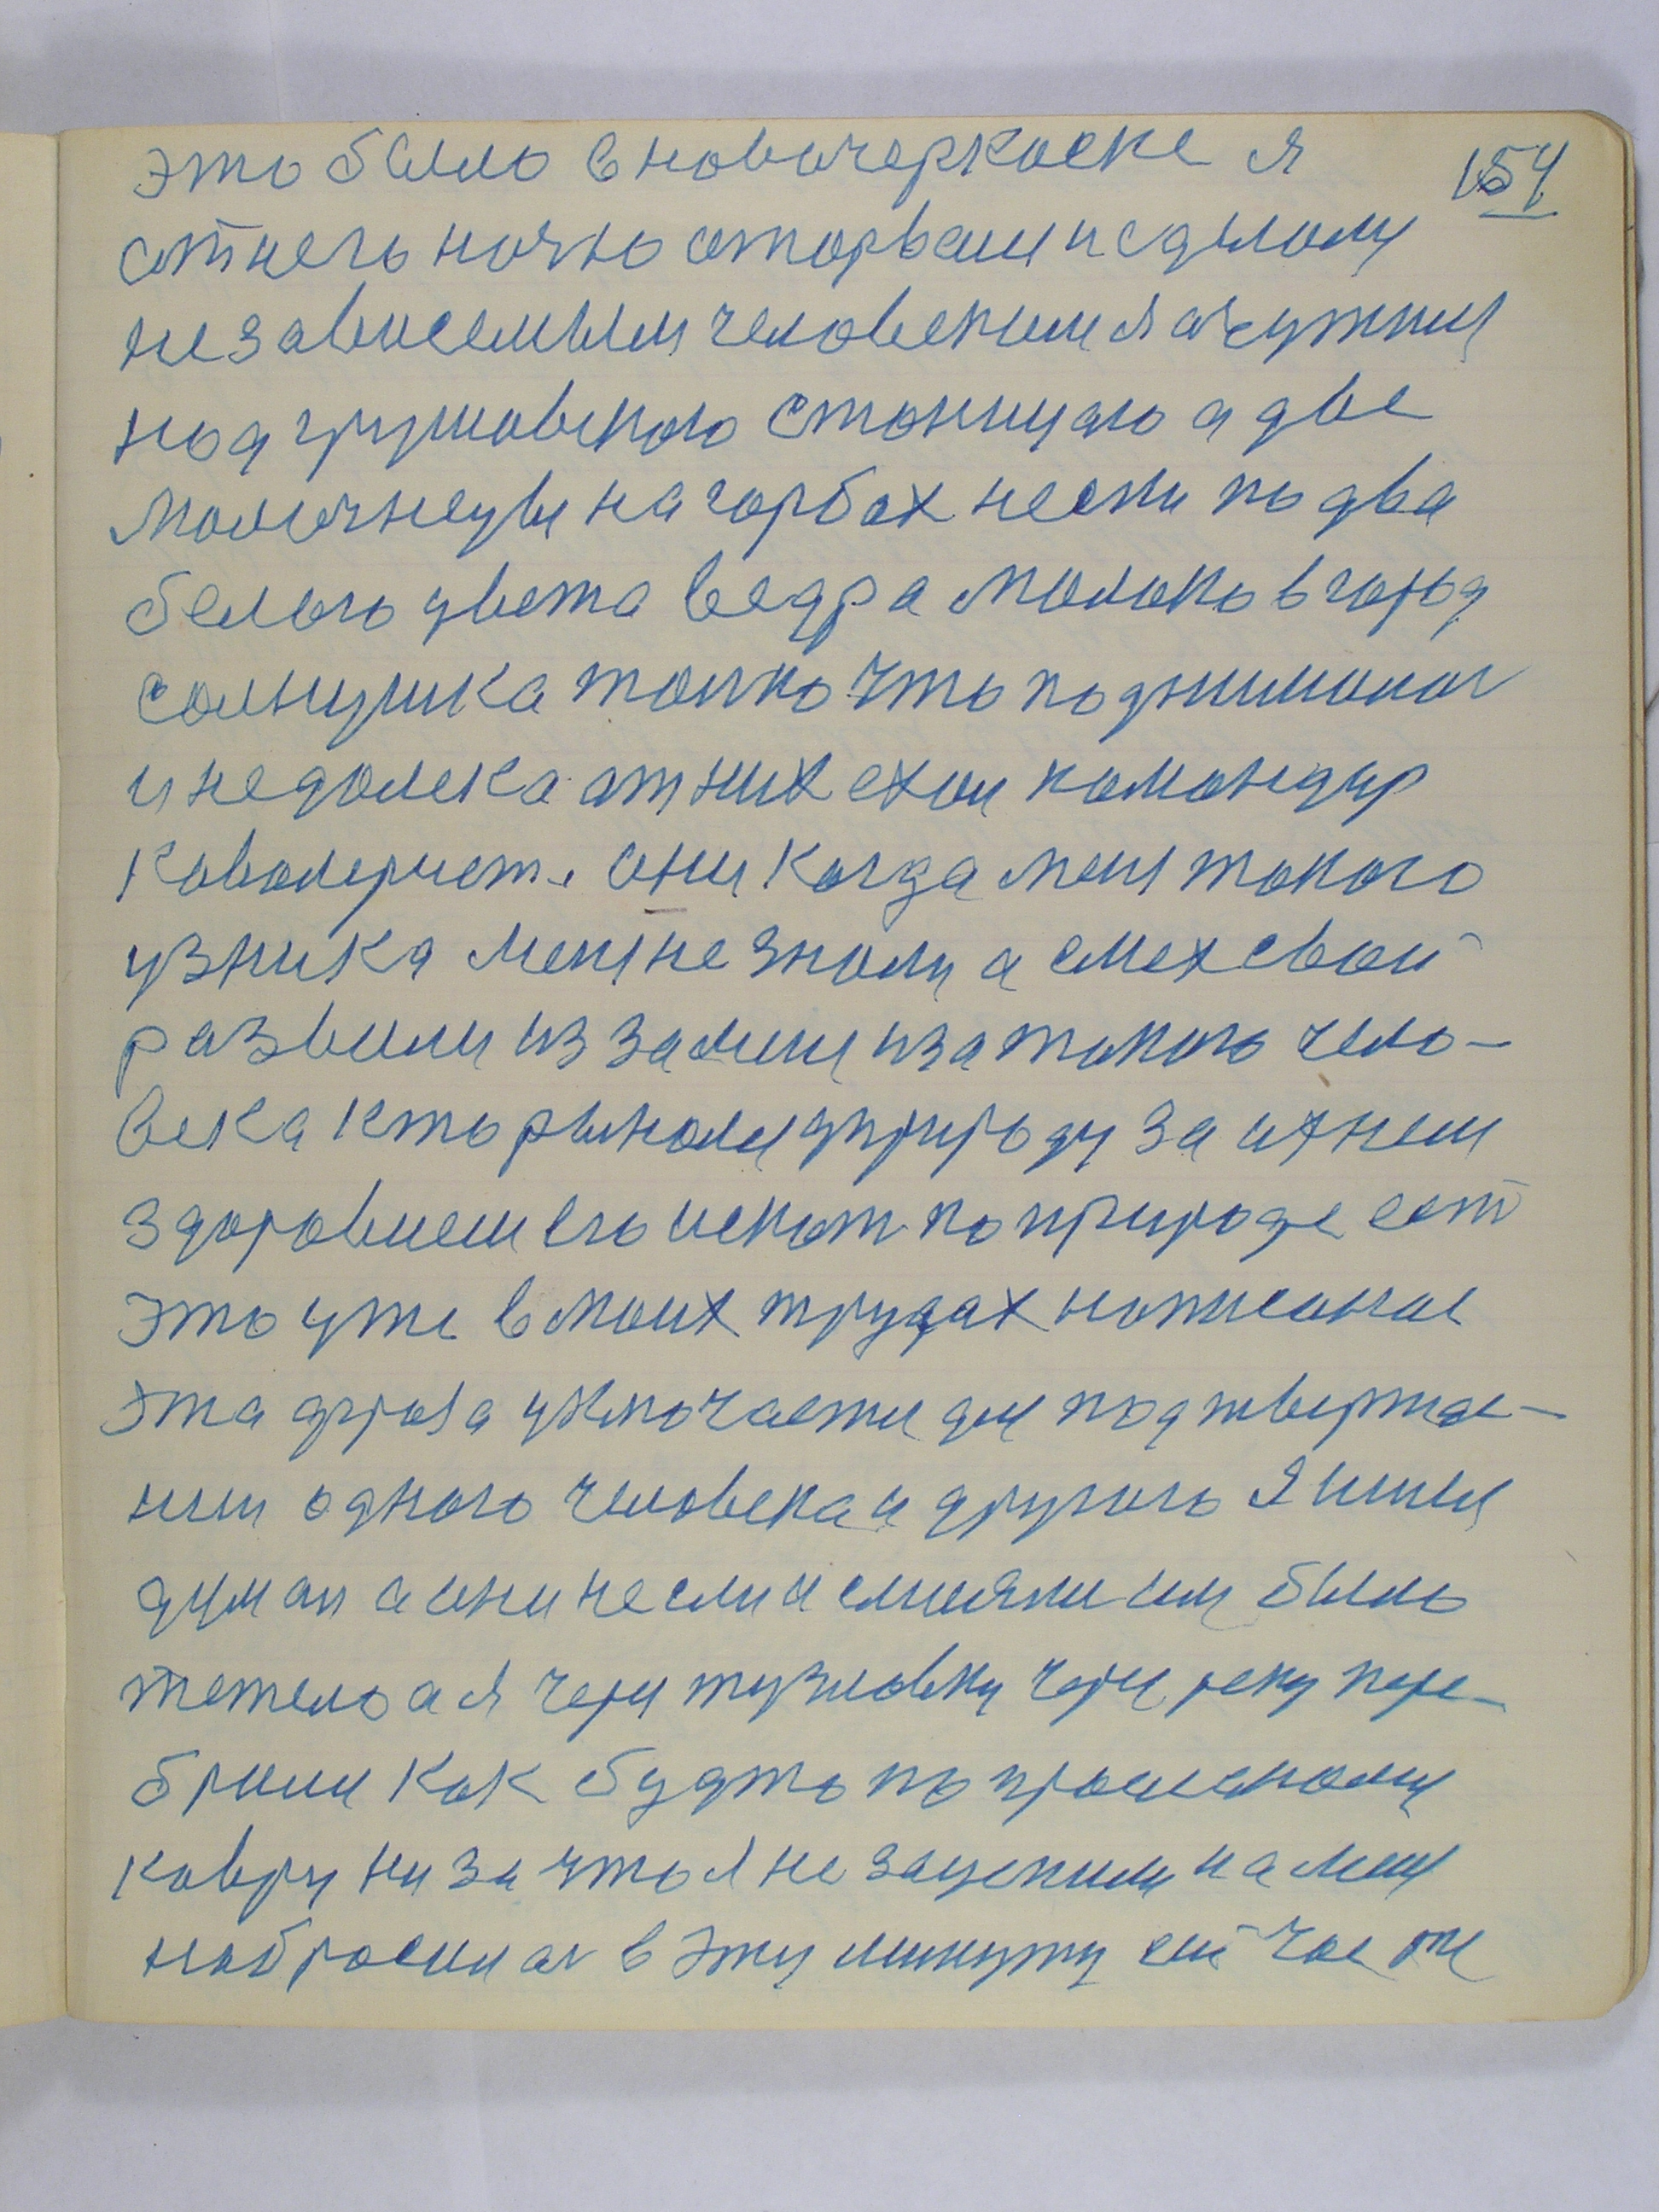 154
это было в новочеркаске я
от него ночю оторвался и сделался
независемым человеком я очутился
под грушовскою станицаю а две
молочнецы на горбах несли по два
белого цвета ведра молоко в город
солнушка толко что поднималас
и недолека от них ехал командир
каволерист. они когда меня такого
узника меня не знали а смех свой
развили из за меня и за такого чело-
века кторый нашел природу за ихнем
здоровием его искат по природе ест
это уже в моих трудах написаное
эта фроза уключается для подтвержде-
ния одного человека и другого Я шел
думал а они несли и смиялис им было
тежело а я через тузловку через реку пере-
брился как будто по
ковру ни за что я не зацепился на меня
набросилас в эту минуту